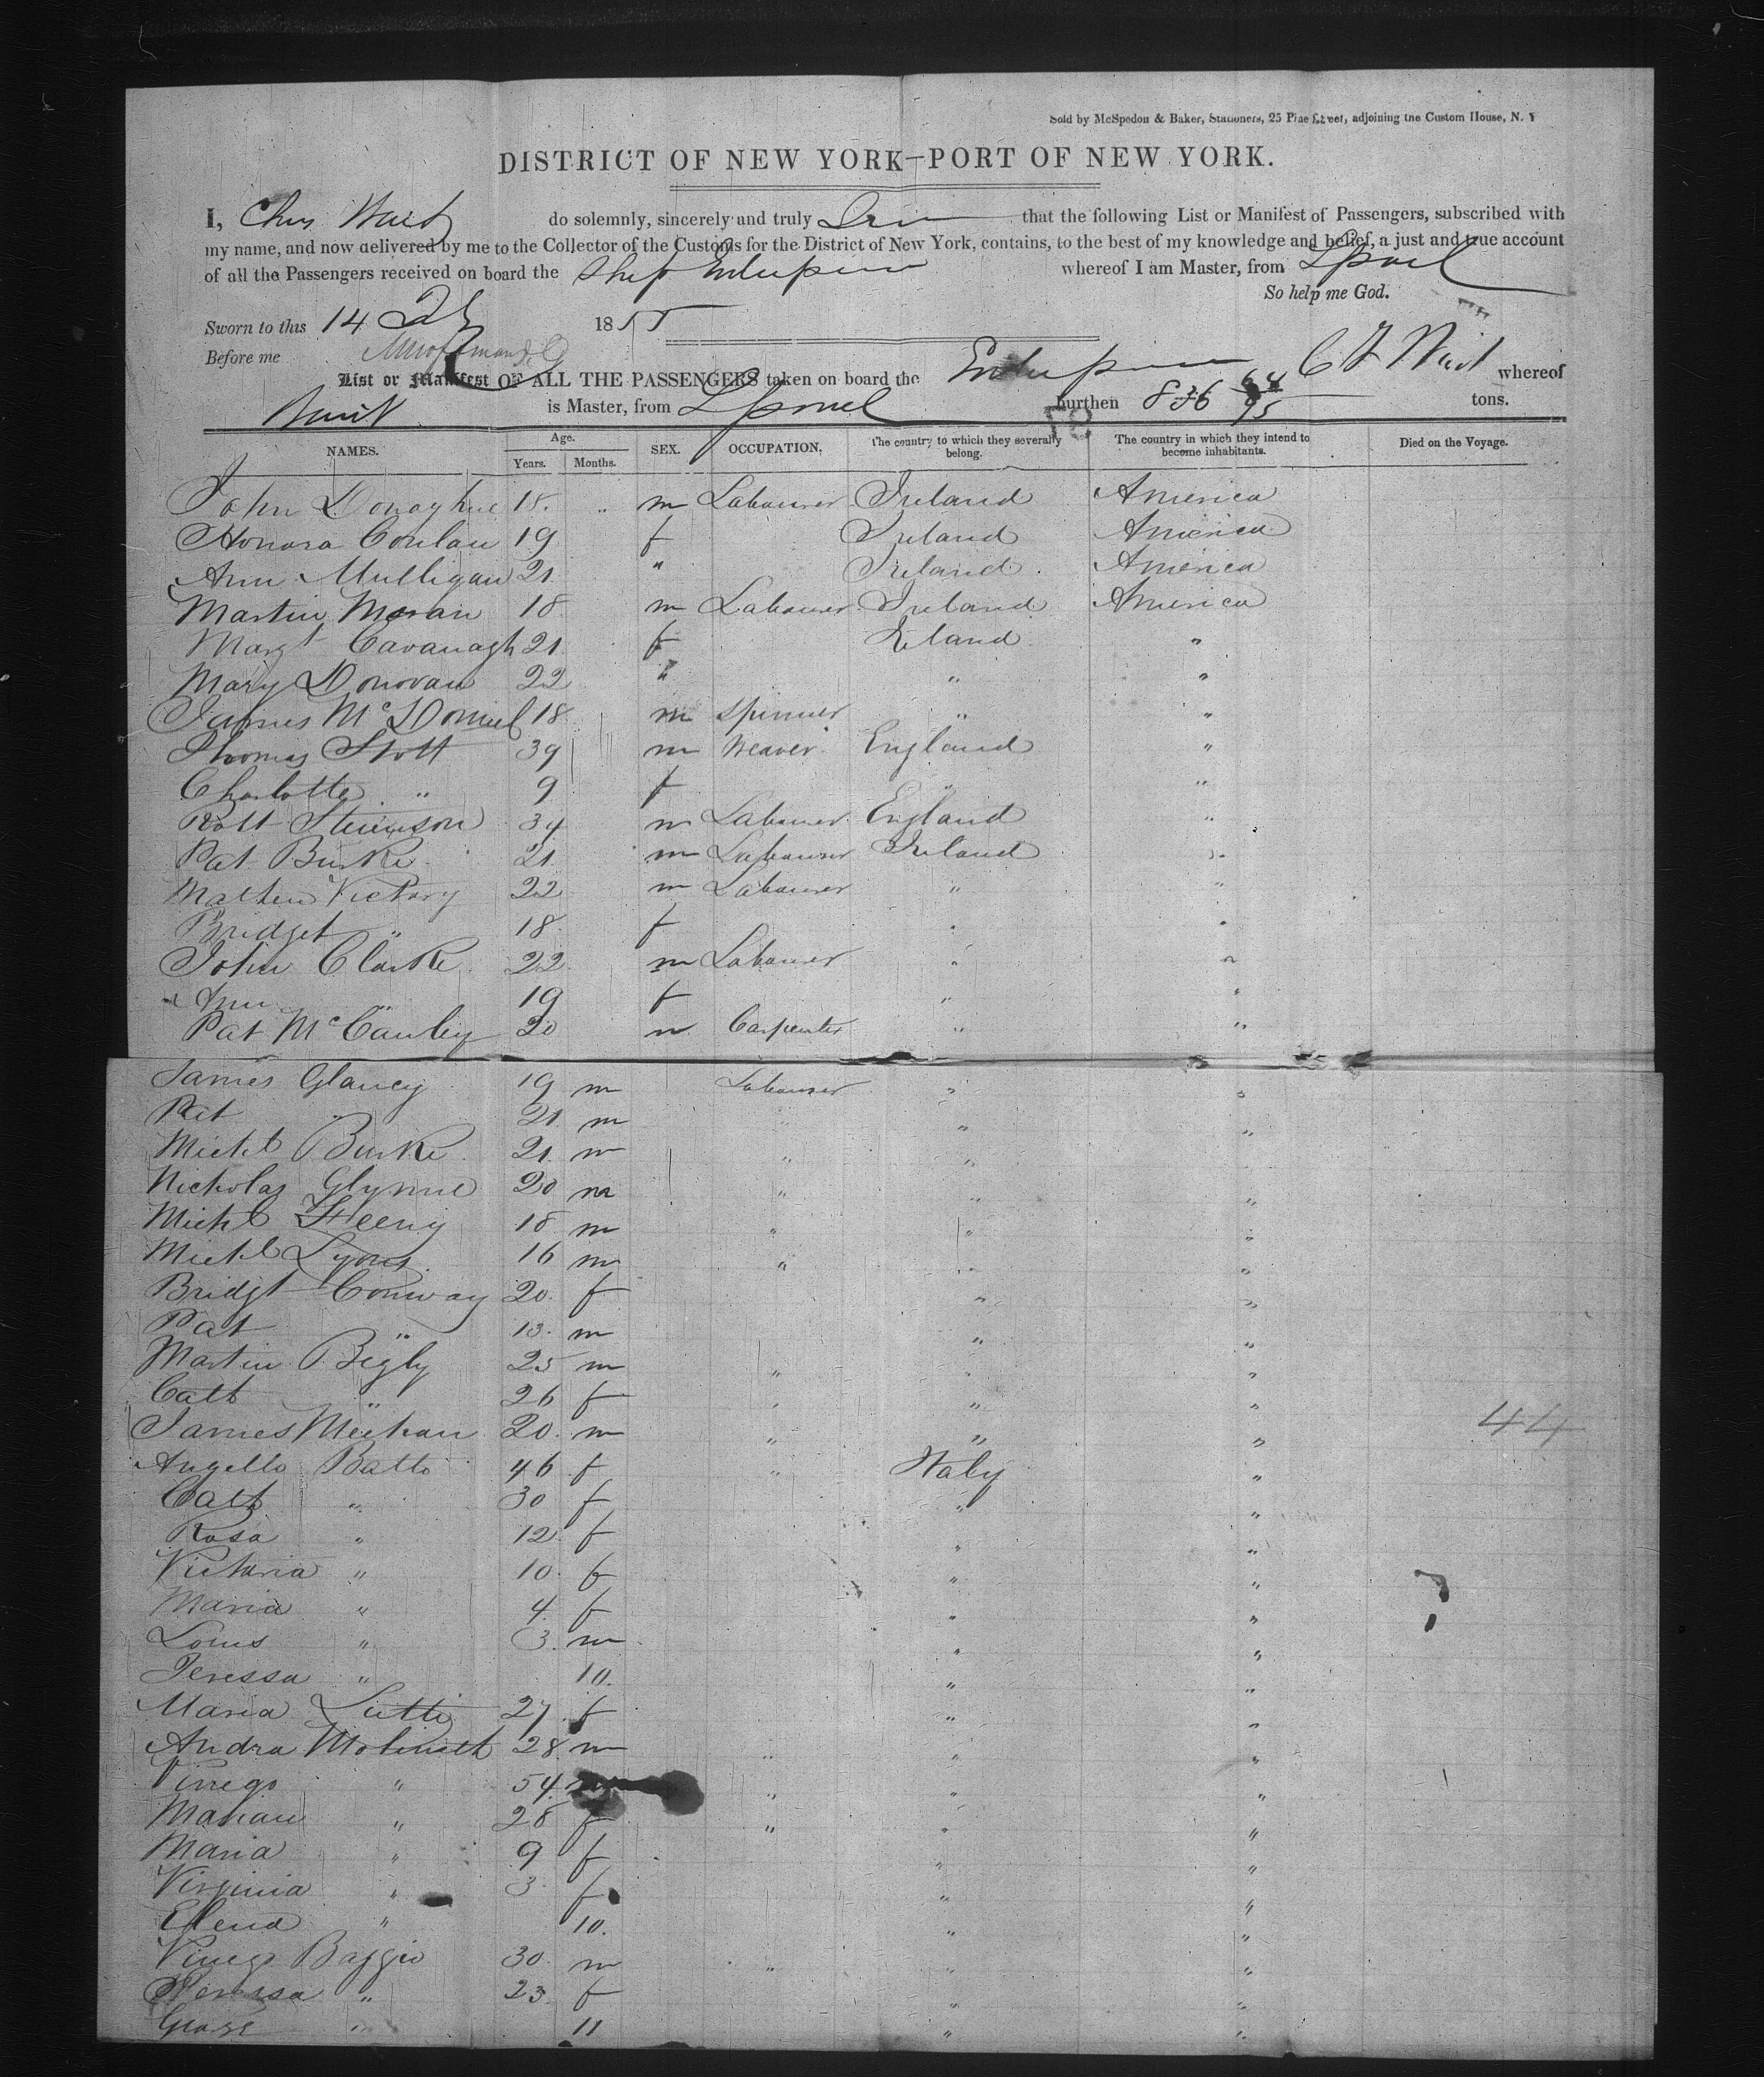 Sold by McSpedon & Baker, Stationers, 25 Pine Street, adjoining the Custom House, N. Y
DISTRICT OF NEW YORK—PORT OF NEW YORK.
I, Chas do solemnly, sincerely and truly that the following List or Manifest of Passengers, subscribed with
my name, and now delivered by me to the Collector of the Customs for the District of New York, contains, to the best of my knowledge and belief, a just and true account
of all the Passengers received on board the Ship whereof I am Master, from Lpool
So help me God.
Sworn to this 14 1855
Before me
List or Manifest OF ALL THE PASSENGERS taken on board the whereof
is Master, from Lpool burthen 836 tons.
NAMES. Age. Years. Months. SEX. OCCUPATION. The country to which they severally belong. The country in which they intend to become inhabitants. Died on the Voyage.
John Donaghue 18. " m Labourer Ireland America
Honora Conlan 19 f Ireland America
Ann Mulligan 21 " Ireland America
Martin Moran 18 m Labourer Ireland America
Margt Cavanagh 21 f Ireland "
Mary Donovan 22 " " "
James McDonnel 18 m Spinner " "
Thomas Stott 39 m Weaver England "
Charlotte " 9 f " "
Robt Stevenson 34 m Labourer England "
Pat Burke 21 m Labourer Ireland "
Mathew Victory 22 m Labourer " "
Bridget " 18 f " "
John Clarke 22 m Labourer " "
Ann " 19 f " "
Pat McCauley 20 m Carpenter " "
James Glancy 19 m Labourer " "
Pat " 21 m " " "
Michl Burke 21 m " " "
Nicholas Glynne 20 m " " "
Michl Feeny 18 m " " "
Michl Lyons 16 m " " "
Bridgt Conway 20 f " "
Pat " 13 m " "
Martin Bigly 25 m " " "
Cath " 26 f " " "
James Meehan 20 m " " "
44
Angello Batto 46 f " Italy "
Cath " 30 f " "
Rosa " 12 f " "
Victoria " 10 f " "
Maria " 4 f " "
Louis " 3 m " "
Teressa " 10. " "
Maria 27 f " "
Andra 28 m " " "
54 " " "
28 f " " "
Maria " 9 f " "
Virginia " 3 f " "
Elena " 10. " "
Baggio 30 m " " "
Teressa " 23 f " "
George " 11 " "